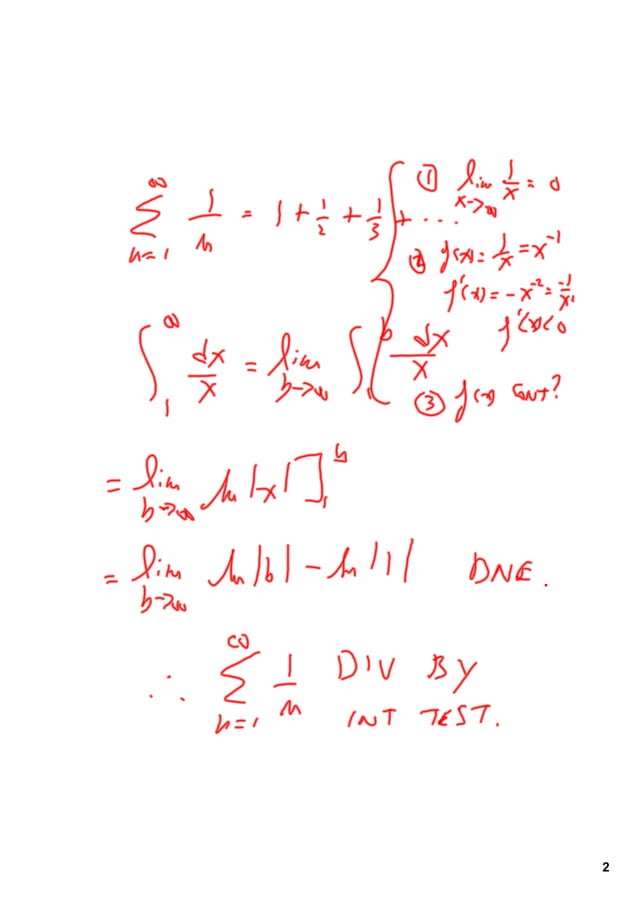 ∞ ∑ n=1 1/n = 1 + 1/2 + 1/3 + ...
① lim x→∞ 1/x = 0
② f(x) = 1/x = x^-1
f'(x) = -x^-2 = -1/x²
f'(x) < 0
③ f(x) CONT?
∫₁^∞ dx/x = lim b→∞ ∫₁^b dx/x
= lim b→∞ ln|x| ]₁^b
= lim b→∞ ln|b| - ln|1| DNE.
∴ ∞ ∑ n=1 1/n DIV BY
INT TEST.
2